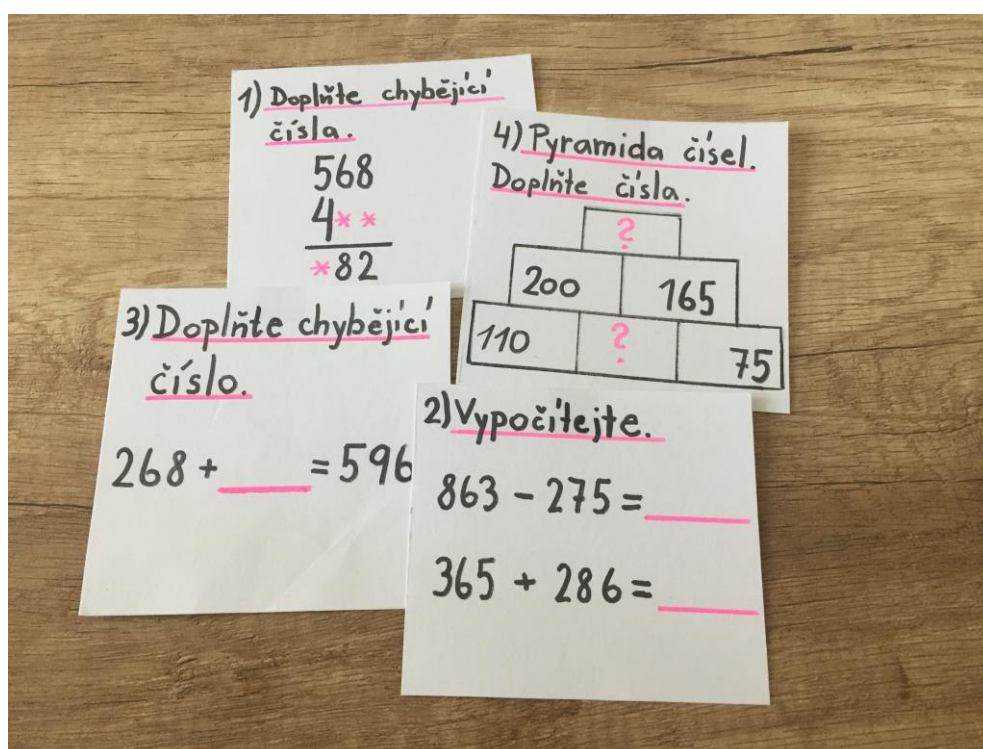 1) Doplňte chybějící
čísla.
568
4**
*82
4) Pyramida čísel.
Doplňte čísla.
?
200 165
110 ? 75
3) Doplňte chybějící
číslo.
268 + ___ = 596
2) Vypočítejte.
863 - 275 = ___
365 + 286 = ___